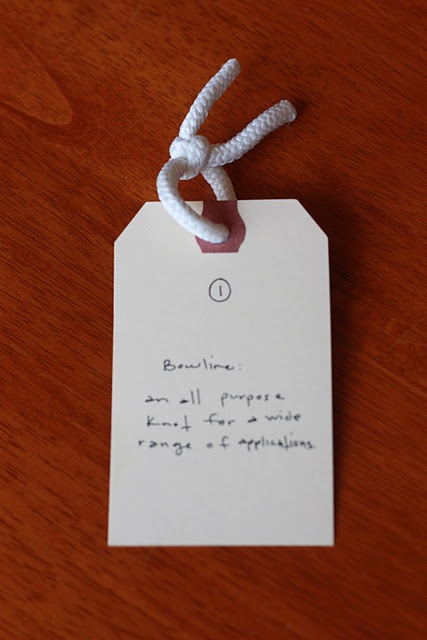 ①
Bowline:
an all purpose
knot for a wide
range of applications.